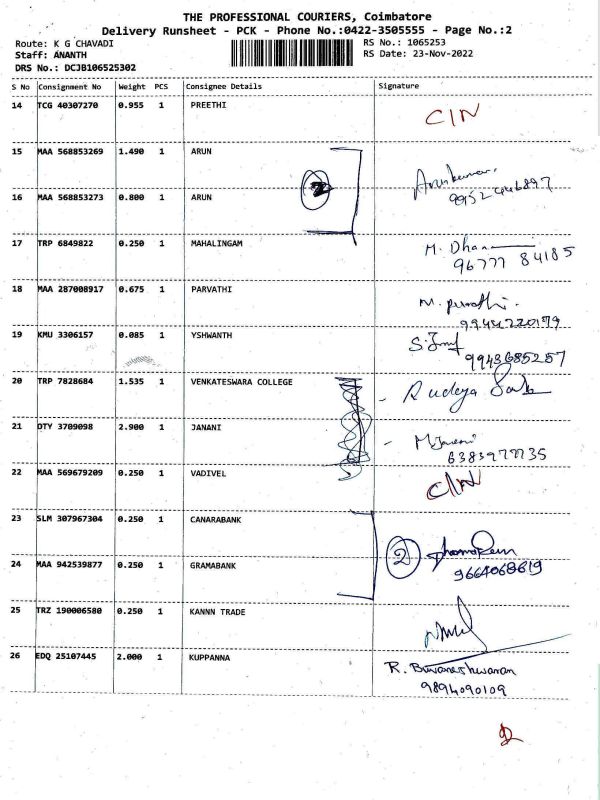 THE PROFESSIONAL COURIERS, Coimbatore
Delivery Runsheet - PCK - Phone No.:0422-3505555 - Page No.:2
Route: K G CHAVADI
Staff: ANANTH
DRS No.: DCJB106525302
RS No.: 1065253
RS Date: 23-Nov-2022
S No Consignment No Weight PCS Consignee Details Signature
14 TCG 40307270 0.955 1 PREETHI
C/N
15 MAA 568853269 1.490 1 ARUN
Arunkumar.
2
16 MAA 568853273 0.800 1 ARUN
17 TRP 6849822 0.250 1 MAHALINGAM
M. Dhana
96777 84185
18 MAA 287008917 0.675 1 PARVATHI
19 KMU 3306157 0.085 1 YSHWANTH
9943685257
20 TRP 7828684 1.535 1 VENKATESWARA COLLEGE
21 DTY 3709098 2.900 1 JANANI
22 MAA 569679209 0.250 1 VADIVEL
C/N
23 SLM 307967304 0.250 1 CANARABANK
2
24 MAA 942539877 0.250 1 GRAMABANK
9664068619
25 TRZ 190006580 0.250 1 KANNN TRADE
26 EDQ 25107445 2.000 1 KUPPANNA
R. Buvaneshwaran
9894090109